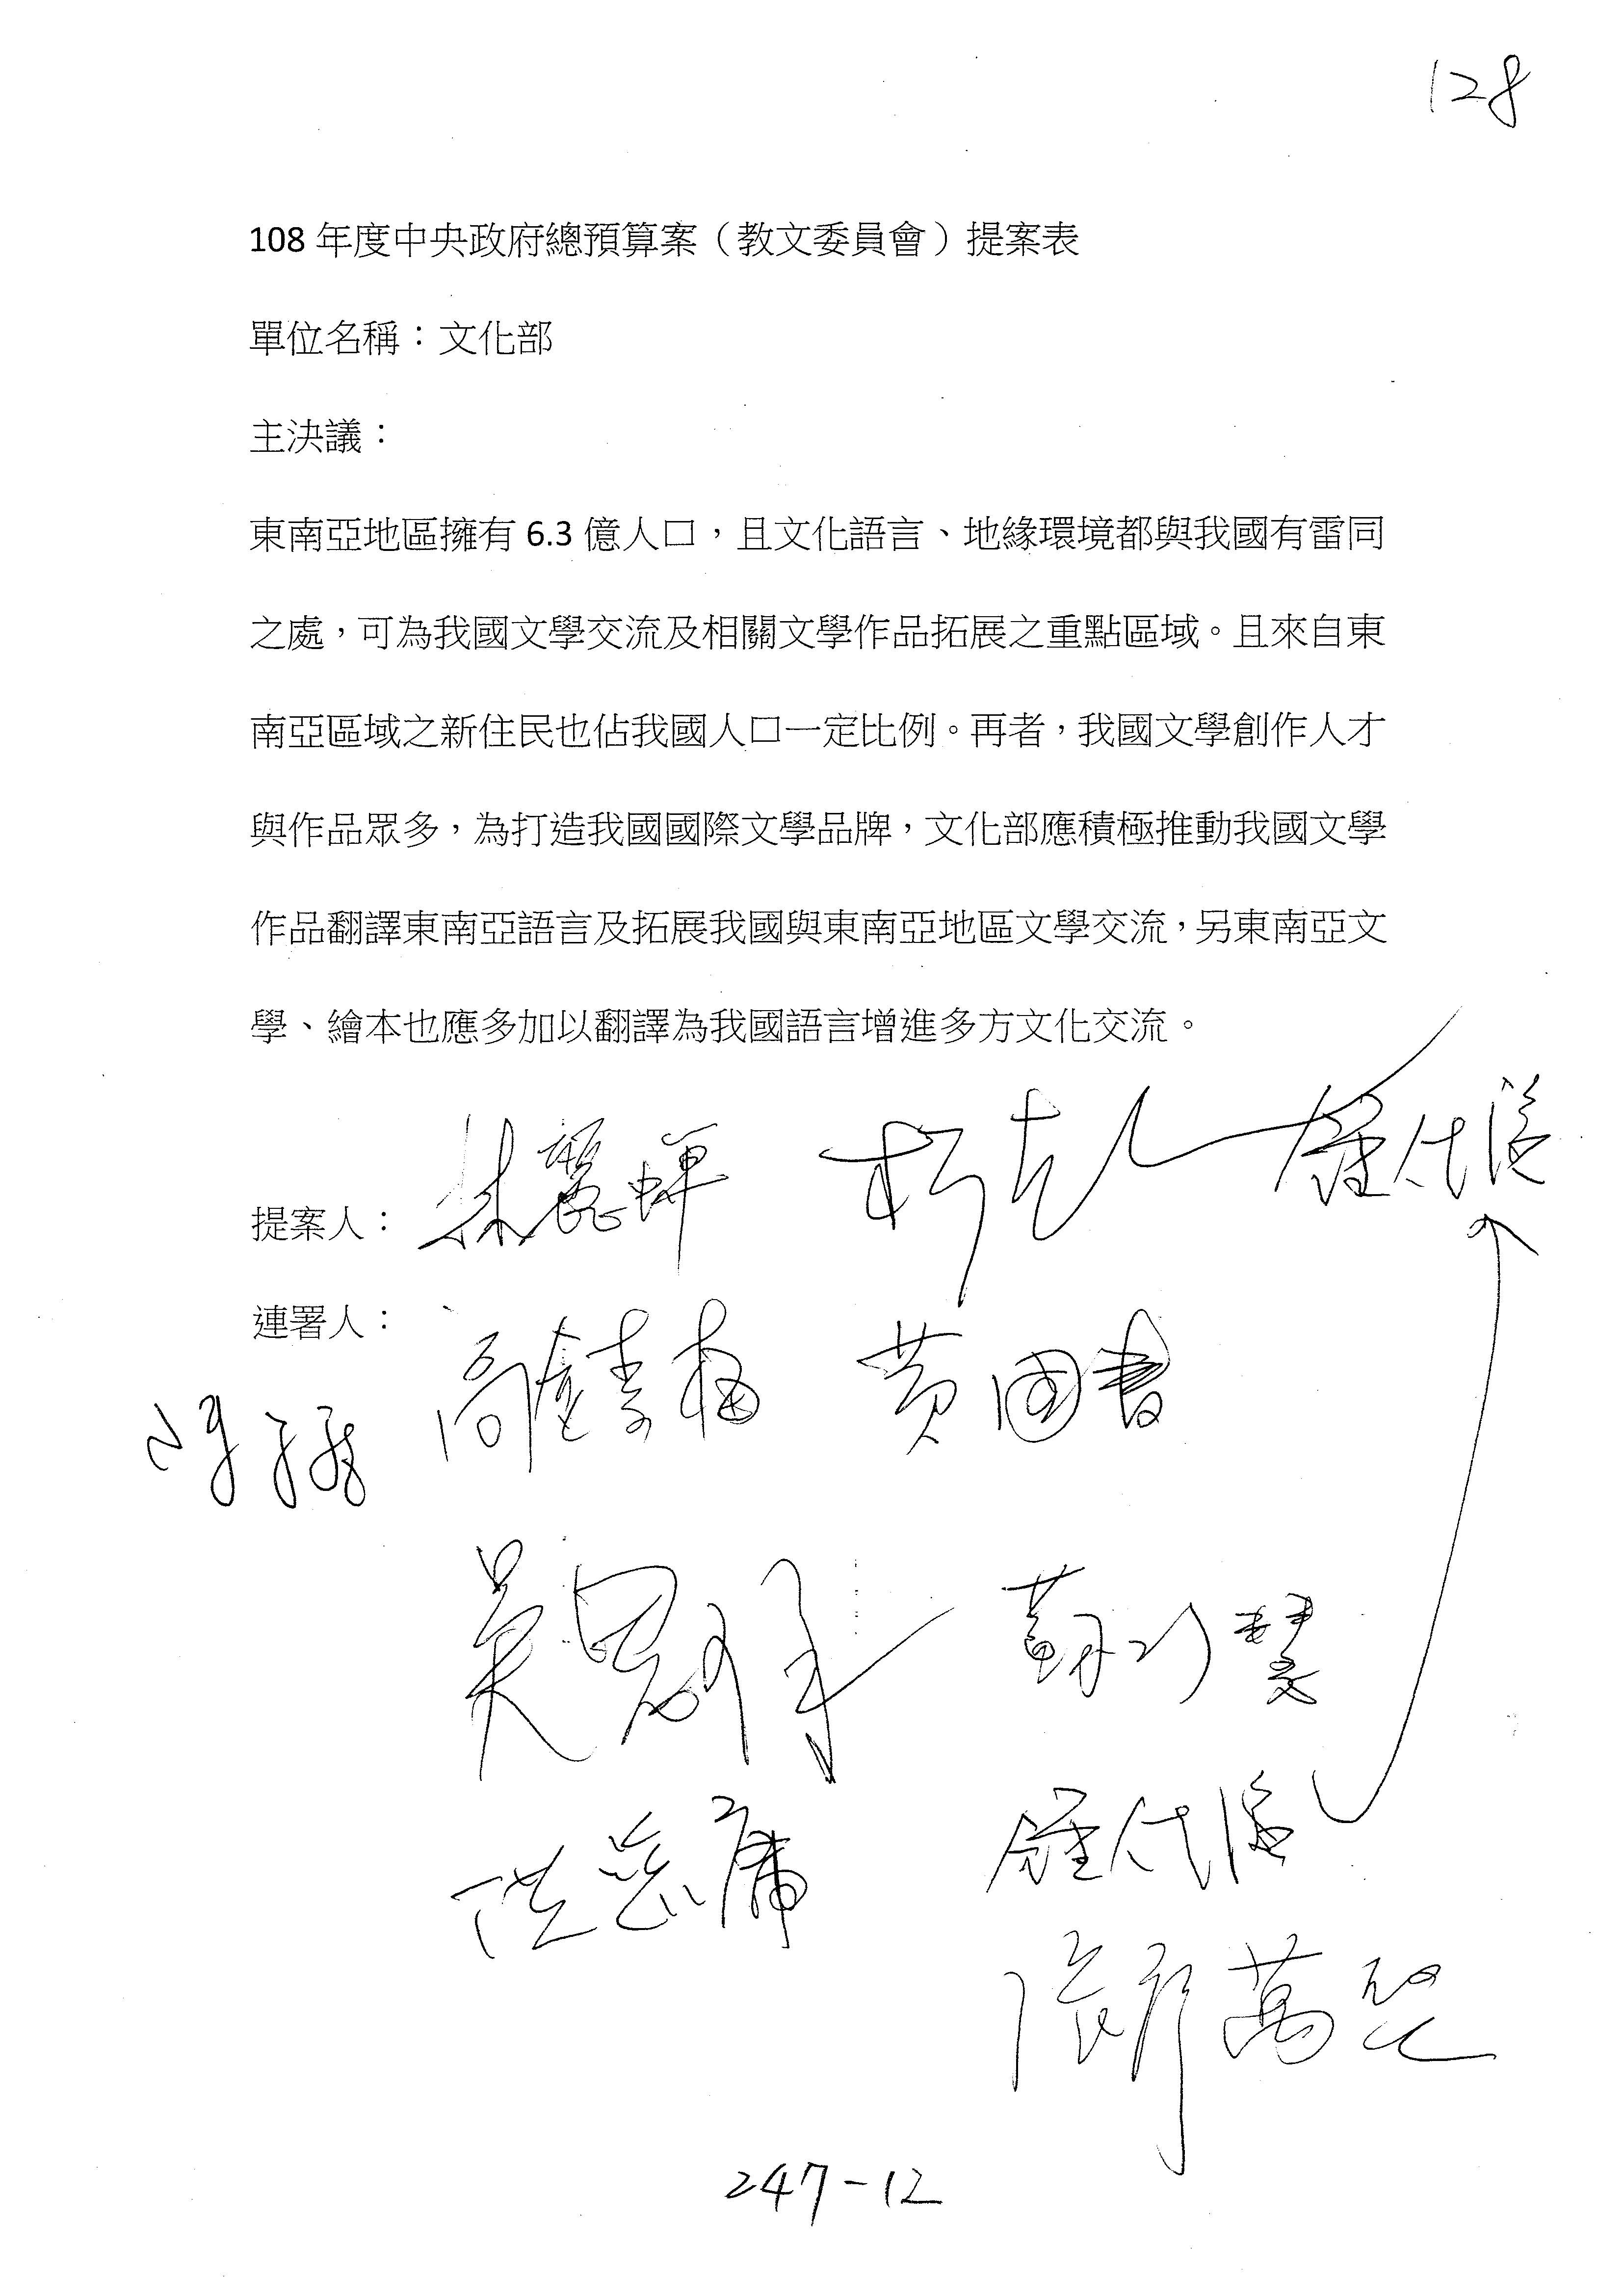 128
108 年度中央政府總預算案（教文委員會）提案表
單位名稱：文化部
主決議：
東南亞地區擁有 6.3 億人口，且文化語言、地緣環境都與我國有雷同
之處，可為我國文學交流及相關文學作品拓展之重點區域。且來自東
南亞區域之新住民也佔我國人口一定比例。再者，我國文學創作人才
與作品眾多，為打造我國國際文學品牌，文化部應積極推動我國文學
作品翻譯東南亞語言及拓展我國與東南亞地區文學交流，另東南亞文
學、繪本也應多加以翻譯為我國語言增進多方文化交流。
提案人： 林麗蟬 鍾佳濱
連署人： 高金素梅 黃國書
吳思瑤 蘇巧慧
洪慈庸 鍾佳濱
張廖萬堅
247-12